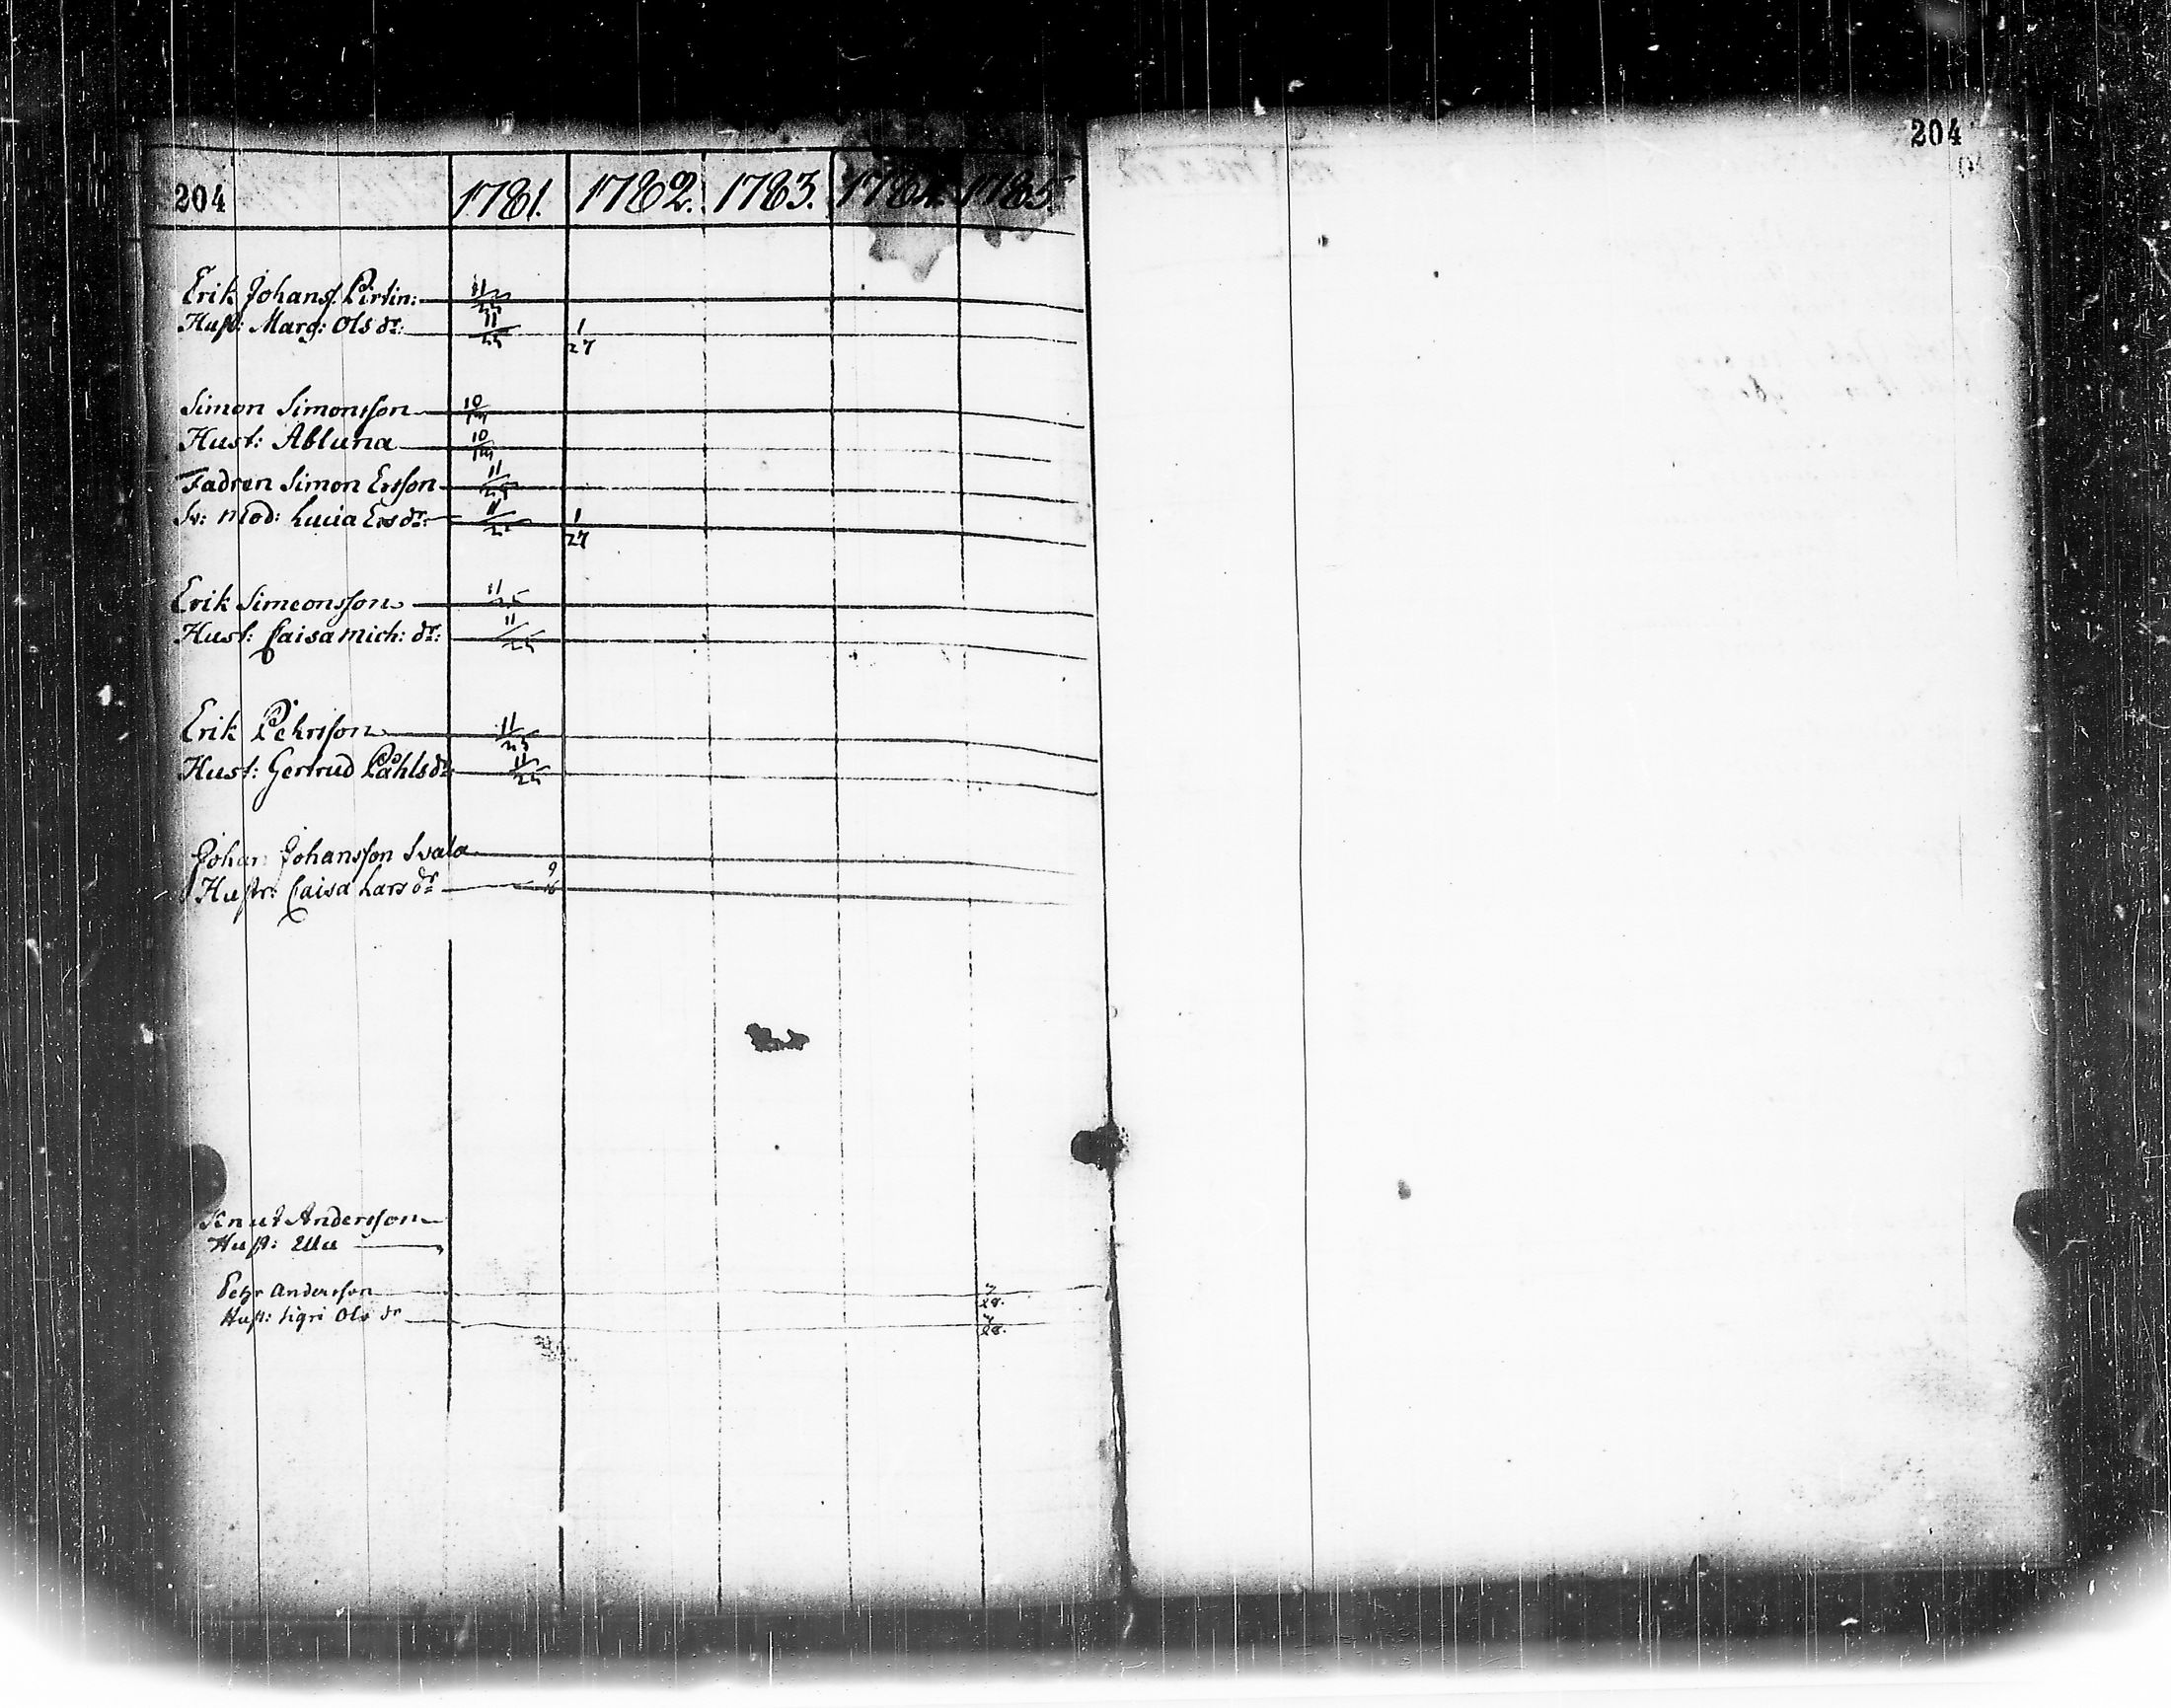 204 1781. 1782. 1783. 1784. 1785.
Erik Johansf. Pirtin: 11/25
Hust: Marg: Ols dr: 11/25 1/27
Simon Simonsson 10
Hust: Abluna 10
Fadren Simon Ersson 11/25
Sv: Mod: Lucia Ers dr: 11/25 1/27
Erik Simeonsson 11/25
Hust: Caisa Mich: dr: 11/25
Erik Pehrsson 11/25
Hust: Gertrud Påhls dr: 11/25
Johan Johansson Svala
Hustr: Caisa Lars dr 9/16
Knut Andersson
Hust: Ulla
Pehr Andersson
Hust: Sigri Ols dr
204